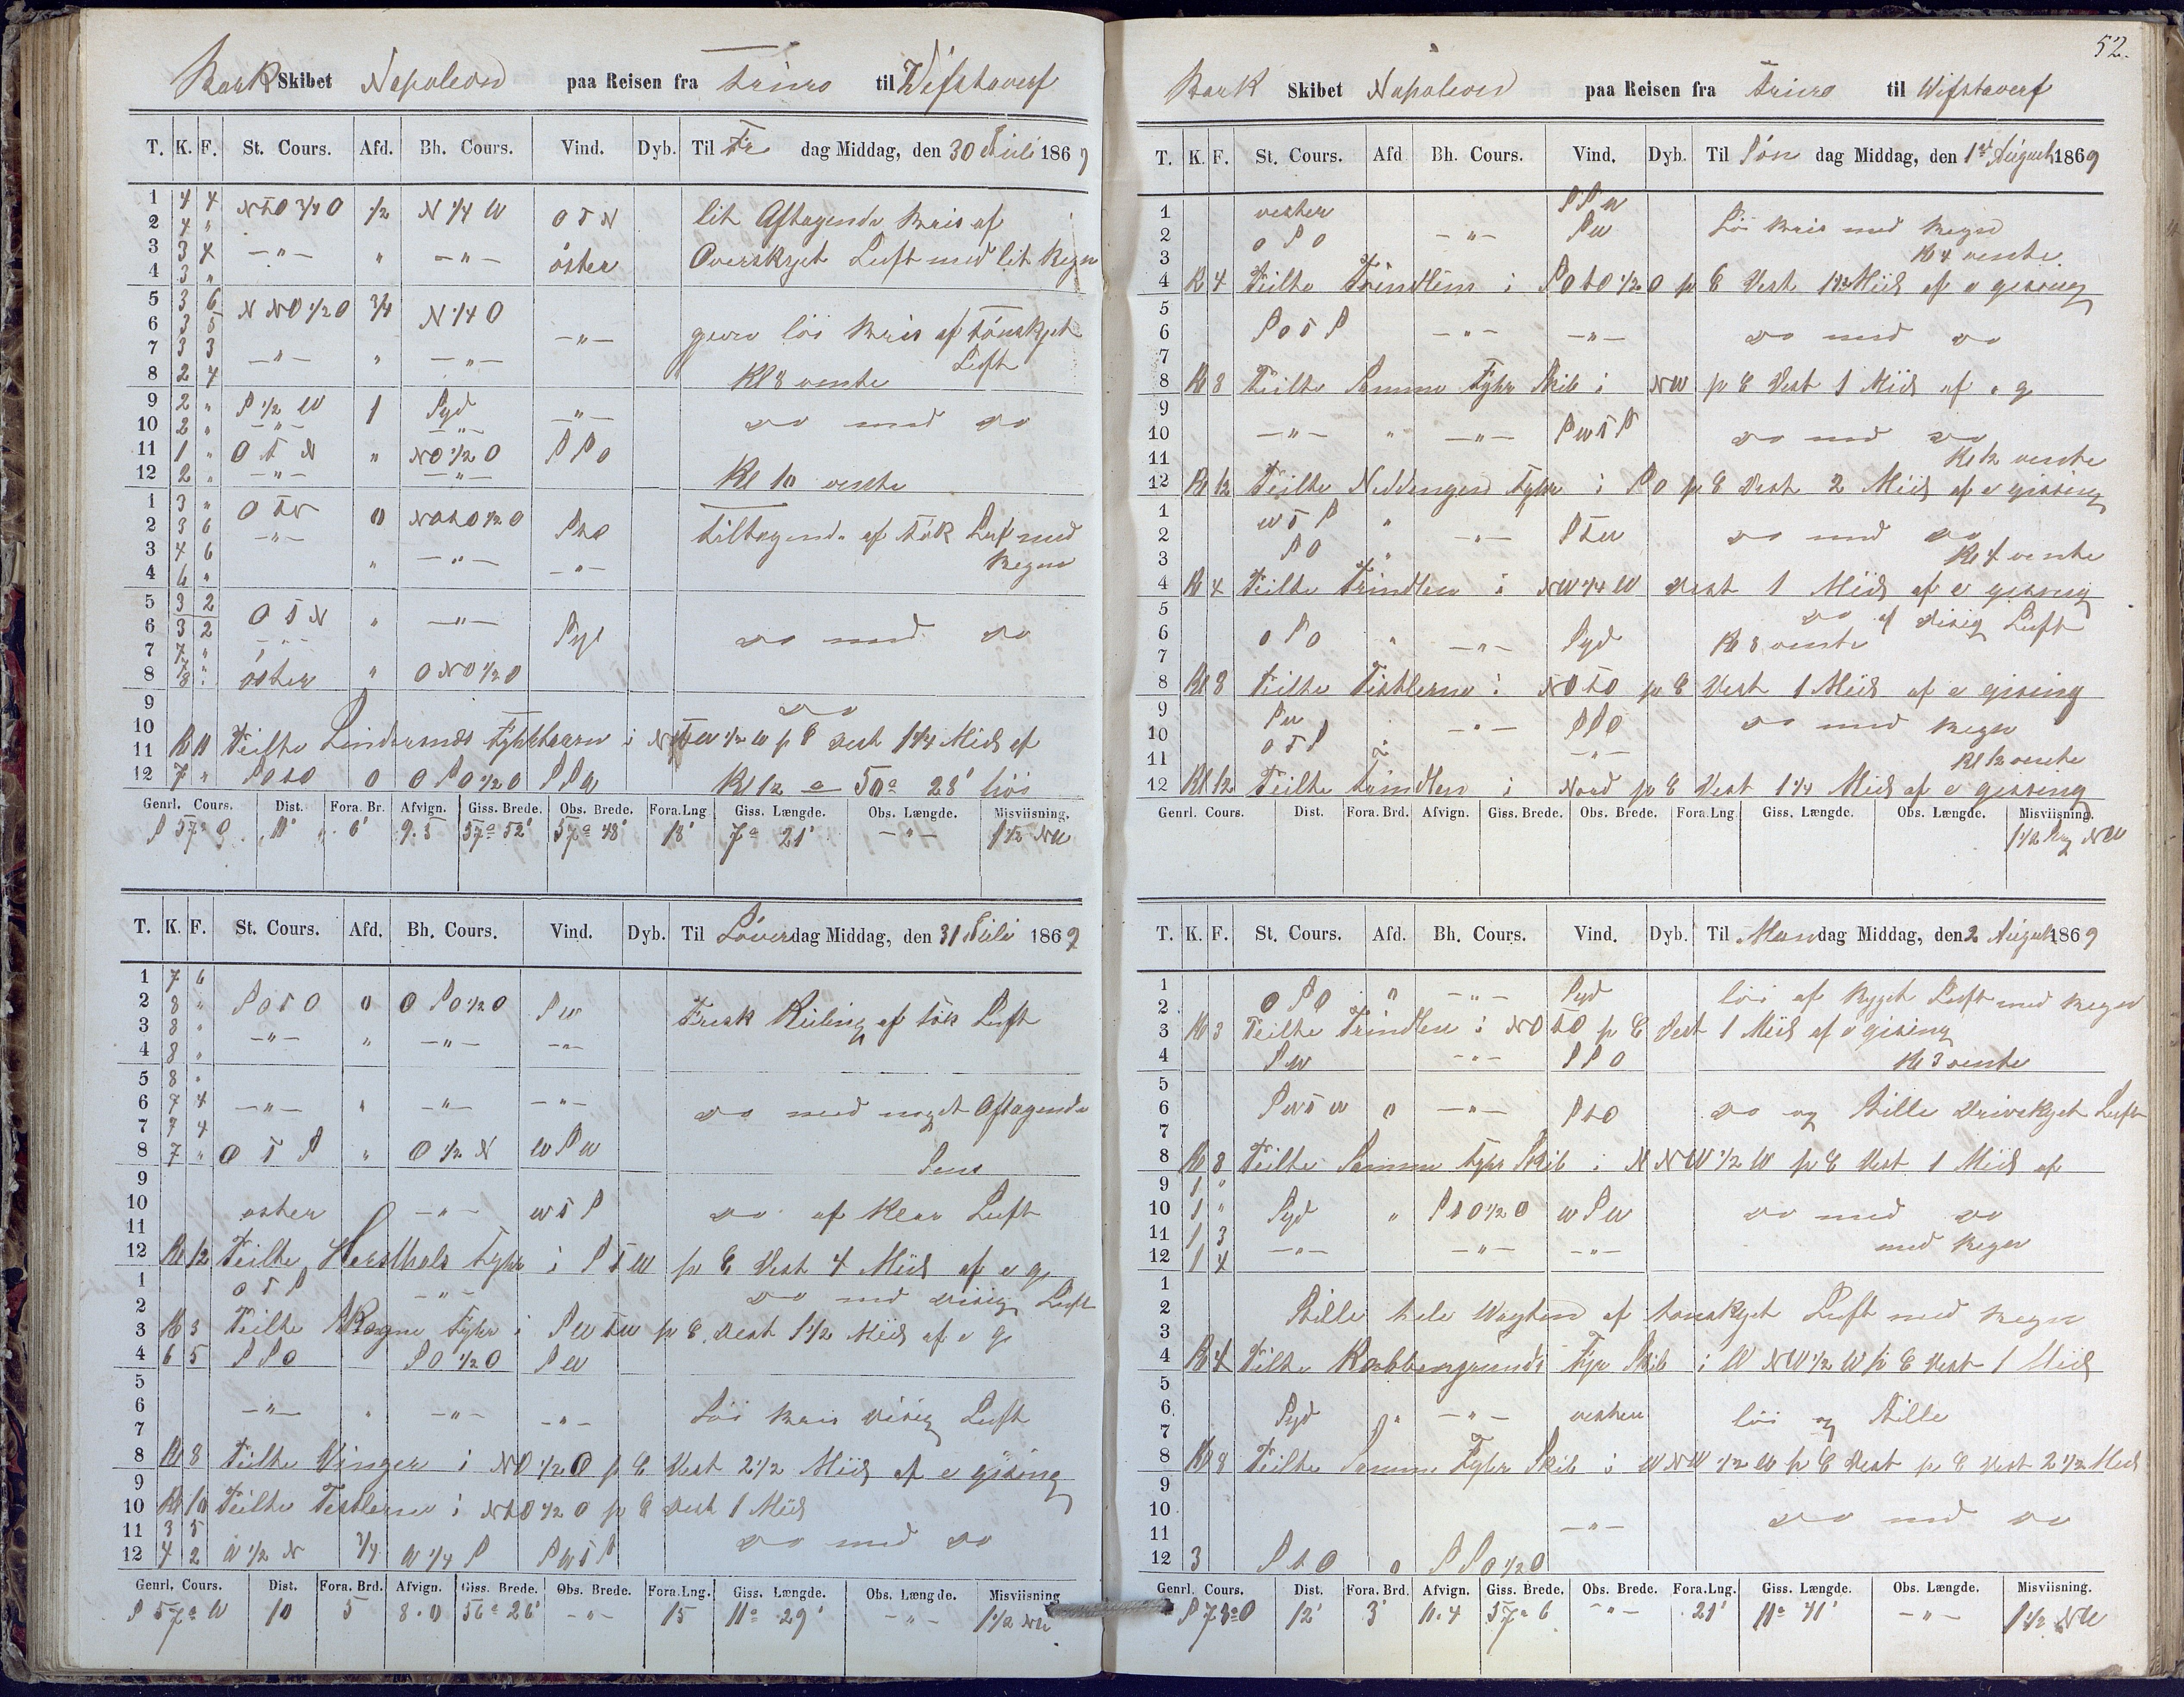 Bark Skibet Napoleon paa Reisen fra til Wifstaverf
T. K. F. St. Cours. Afd. Bh. Cours. Vind. Dyb. Til Fre dag Middag, den 30 Juli 1869
1 4 4 NtO 3/4 O 1/2 N 1/4 W OtN lit Aftagende Bris af
2 4 "
3 3 4 -"- " -"- öster Overskyet Luft med lit Regn
4 3 "
5 3 6 N NO 1/2 O 3/4 N 1/4 O
6 3 5 -"- löi Bris af tönskyet
7 3 3 -"- " -"- Luft
8 2 4 Kl 8 vente
9 2 " S 1/2 W 1 Syd -"- do med do
10 2 " -"- -"-
11 1 " O t N " NO 1/2 O S S O
12 2 " -"- -"- Kl 10 vente
1 3 " O t N 0 NOtO 1/2 O
2 3 6 -"- StO tiltagende af tök Luft med
3 4 6 " -"- -"- Regn
4 6 "
5 3 2 O t N " -"-
6 3 2 -"- Syd do med do
7 7 "
8 8 " öster " O NO 1/2 O
9 do
10
11 Kl 11 Peilte Lindesnæs Fyrtaarn i 1/2 W p C Dest 1 1/4 Miil af
12 7 " SOtO 0 O SO 1/2 O S S W Kl 12 löi
Genrl. Cours. Dist. Fora. Br. Afvign. Giss. Brede. Obs. Brede. Fora. Lng Giss. Længde. Obs. Længde. Misviisning.
S 57° O 11' 6' 9.5 57° 52' 57° 48' 18' 7° 21' -"- 1 1/2 NW
T. K. F. St. Cours. Afd. Bh. Cours. Vind. Dyb. Til Löverdag Middag, den 31 Juli 1869
1 7 6
2 8 " SOtO 0 O SO 1/2 O SW Frisk Kuling af tök Luft
3 8 "
4 8 " -"- " -"- -"-
5 8 "
6 7 4 -"- " -"- -"- do med noget Aftagende
7 7 4
8 7 " O t S " O 1/2 N W S W
9
10 oster -"- W t S do af klar Luft
11
12 Kl 12 Peilte Hersthals Fyhr i S t W p C Dest 4 Miil af e g
1 O t S -"- do med disig Luft
2
3 Kl 3 Peilte Fyhr i SWtW p C Dest 1 1/2 Miil af e g
4 6 5 S S O SO 1/2 O SW
5
6 -"- " -"- -"- Löi Bris disig Luft
7
8 Kl 8 Peilte Winger i NO 1/2 O p C Dest 2 1/2 Miil af e gising
9
10 Kl 10 Peilte Tistlerne i NtO 1/2 O p C Dest 1 Miil
11 3 5 do med do
12 4 2 W 1/2 N 3/4 W 1/4 S SWtS
Genrl. Cours. Dist. Fora. Brd. Afvign. Giss. Brede. Obs. Brede. Fora. Lng. Giss. Længde. Obs. Længde. Misviisning
S 57° W 10 5 8.0 56° 26' -"- 15 11° 29' -"- 1 1/2 NW
52.
Bark Skibet Napoleon paa Reisen fra til Wifstaverf
T. K. F. St. Cours. Afd Bh. Cours. Vind. Dyb. Til Søn dag Middag, den 1st August 1869
1 vester S S W
2 O S O -"- SW Löi Bris med Regn
3 Kl 4 vente
4 Kl 4 Peilte Trindlen i SOtO 1/2 O p C Dest 1 1/2 Miil af e gising
5
6 SOtS -"- -"- do med do
7
8 Kl 8 Peilte Samme Fyhr Skib i NW p C Dest 1 Miil af e g
9
10 -"- " -"- SWtS do med do
11 Kl 12 vente
12 Kl 12 Peilte Niddingen Fyhr i SO p C Dest 2 Miil af e gissing
1 W t S "
2 -"- StW do med do
3 SO " Kl 4 vente
4 Kl 4 Peilte Trindlen i NW 1/4 W Dest 1 Miil af e gissing
5 do af disig Luft
6 O S O " -"- Syd Kl 8 vente
7
8 Kl 8 Peilte Tistlerne i NOtO p C Dest 1 Miil af e gising
9 SW -"- S S O do med Regn
10
11 O t S " -"- Kl 12 vente
12 Kl 12 Peilte Trindlen i Nord p C Dest 1 1/4 Miil af e gissing
Genrl. Cours. Dist. Fora. Brd. Afvign. Giss. Brede. Obs. Brede. Fora. Lng Giss. Længde. Obs. Længde. Misviisning.
1 1/2 NW
T. K. F. St. Cours. Afd. Bh. Cours. Vind. Dyb. Til Mandag Middag, den 2 August 1869
1
2 O S O " -"- Syd löi af Luft med Regn
3 Kl 3 Peilte Trindlen i NOtO p C Dest 1 Miil af e gising
4 SW -"- S S O Kl 3 vente
5
6 SWtW 0 -"- StO do og Stille drivskyet Luft
7
8 Kl 8 Peilte Samme Fyhr Skib i N NW 1/2 W p C Dest 1 Miil af
9 1 "
10 1 " Syd " StO 1/2 O W S W do med do
11 1 3 -"- -"- -"- med Regn
12 1 4
1
2 Stille hele Wagten af tönskyet Luft med Regn
3
4 Kl 4 Peilte Kobbergrunds Fyr Skib i W NW 1/2 W p C Dest 1 Miil
5
6 Syd " -"- vesten löi og Stille
7
8 Kl 8 Peilte Samme Fyhr Skib i W NW 1/2 W p C Dest p C Dest 2 1/2 Miil
9
10
11 -"- do med do
12 3 StO 0 S SO 1/2 O
Genrl. Cours. Dist. Fora. Brd. Afvign. Giss. Brede. Obs. Brede. Fora. Lng. Giss. Længde. Obs. Længde. Misviisning.
S 73° O 12' 3' 11.4 57° 6 -"- 21' 11° 41' -"- 1 1/2 NW